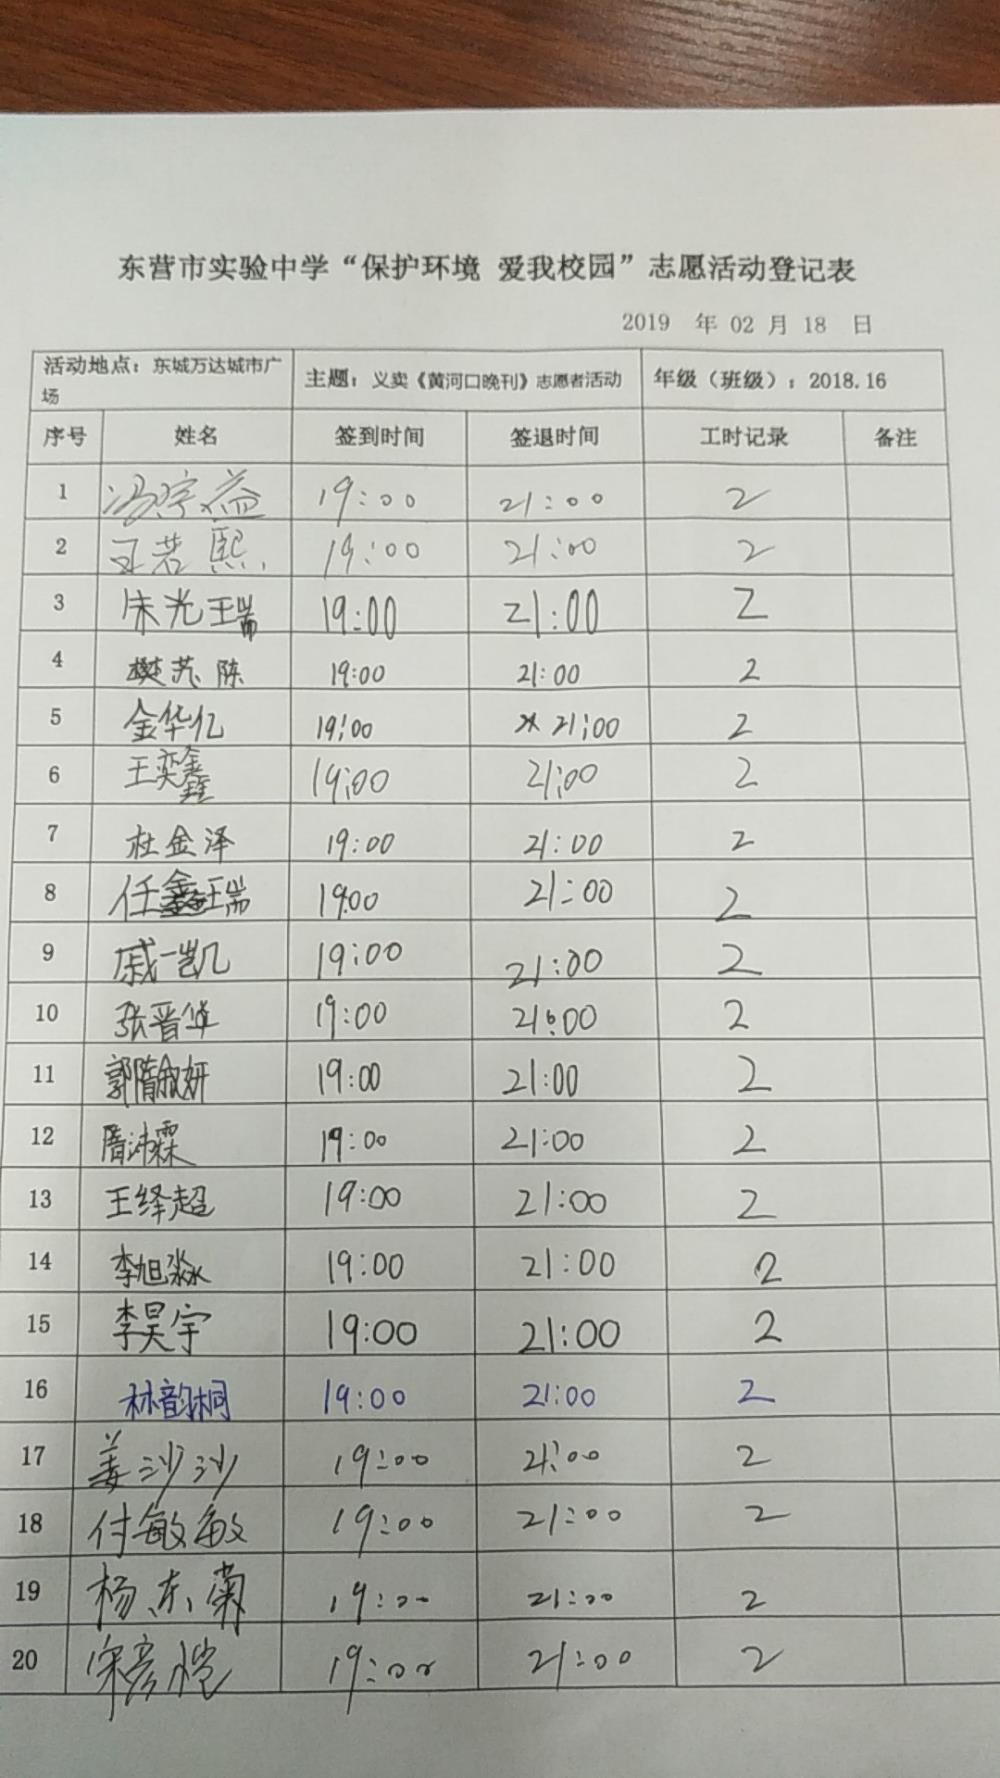 东营市实验中学“保护环境 爱我校园”志愿活动登记表
2019 年 02 月 18 日
活动地点：东城万达城市广场 主题：义卖《黄河口晚刊》志愿者活动 年级（班级）：2018.16
序号 姓名 签到时间 签退时间 工时记录 备注
1 冯宇益 19:00 21:00 2
2 王若熙 19:00 21:00 2
3 朱光瑞 19:00 21:00 2
4 樊苏陈 19:00 21:00 2
5 金华亿 19:00 21:00 2
6 王奕鑫 19:00 21:00 2
7 杜金泽 19:00 21:00 2
8 任鑫瑞 19:00 21:00 2
9 戚一凯 19:00 21:00 2
10 张晋华 19:00 21:00 2
11 郭隋淑妍 19:00 21:00 2
12 隋沛霖 19:00 21:00 2
13 王绎超 19:00 21:00 2
14 李旭淼 19:00 21:00 2
15 李昊宇 19:00 21:00 2
16 林韵桐 19:00 21:00 2
17 姜沙沙 19:00 21:00 2
18 付敏敏 19:00 21:00 2
19 杨东菊 19:00 21:00 2
20 宋彦恺 19:00 21:00 2